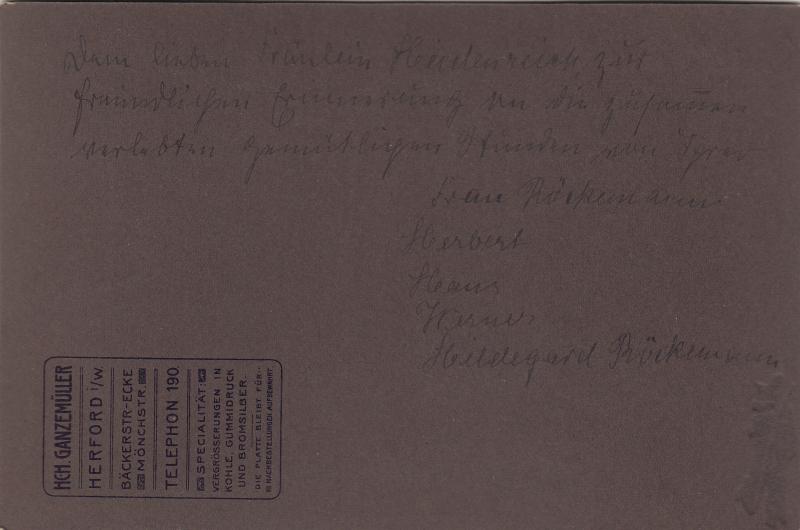 Dem lieben Fräulein Heidenreich zur
freundlichen Erinnerung an die zusammen
verlebten gemütlichen Stunden von Ihrer
Frau Röckemann
Herbert
Hans
Werner
Hildegard Röckemann
HCH. GANZEMÜLLER
HERFORD i/W.
BÄCKERSTR-ECKE
MÖNCHSTR.
TELEPHON 190.
SPECIALITÄT:
VERGRÖSSERUNGEN IN
KOHLE, GUMMIDRUCK
UND BROMSILBER.
DIE PLATTE BLEIBT FÜR
NACHBESTELLUNGEN AUFBEWAHRT.